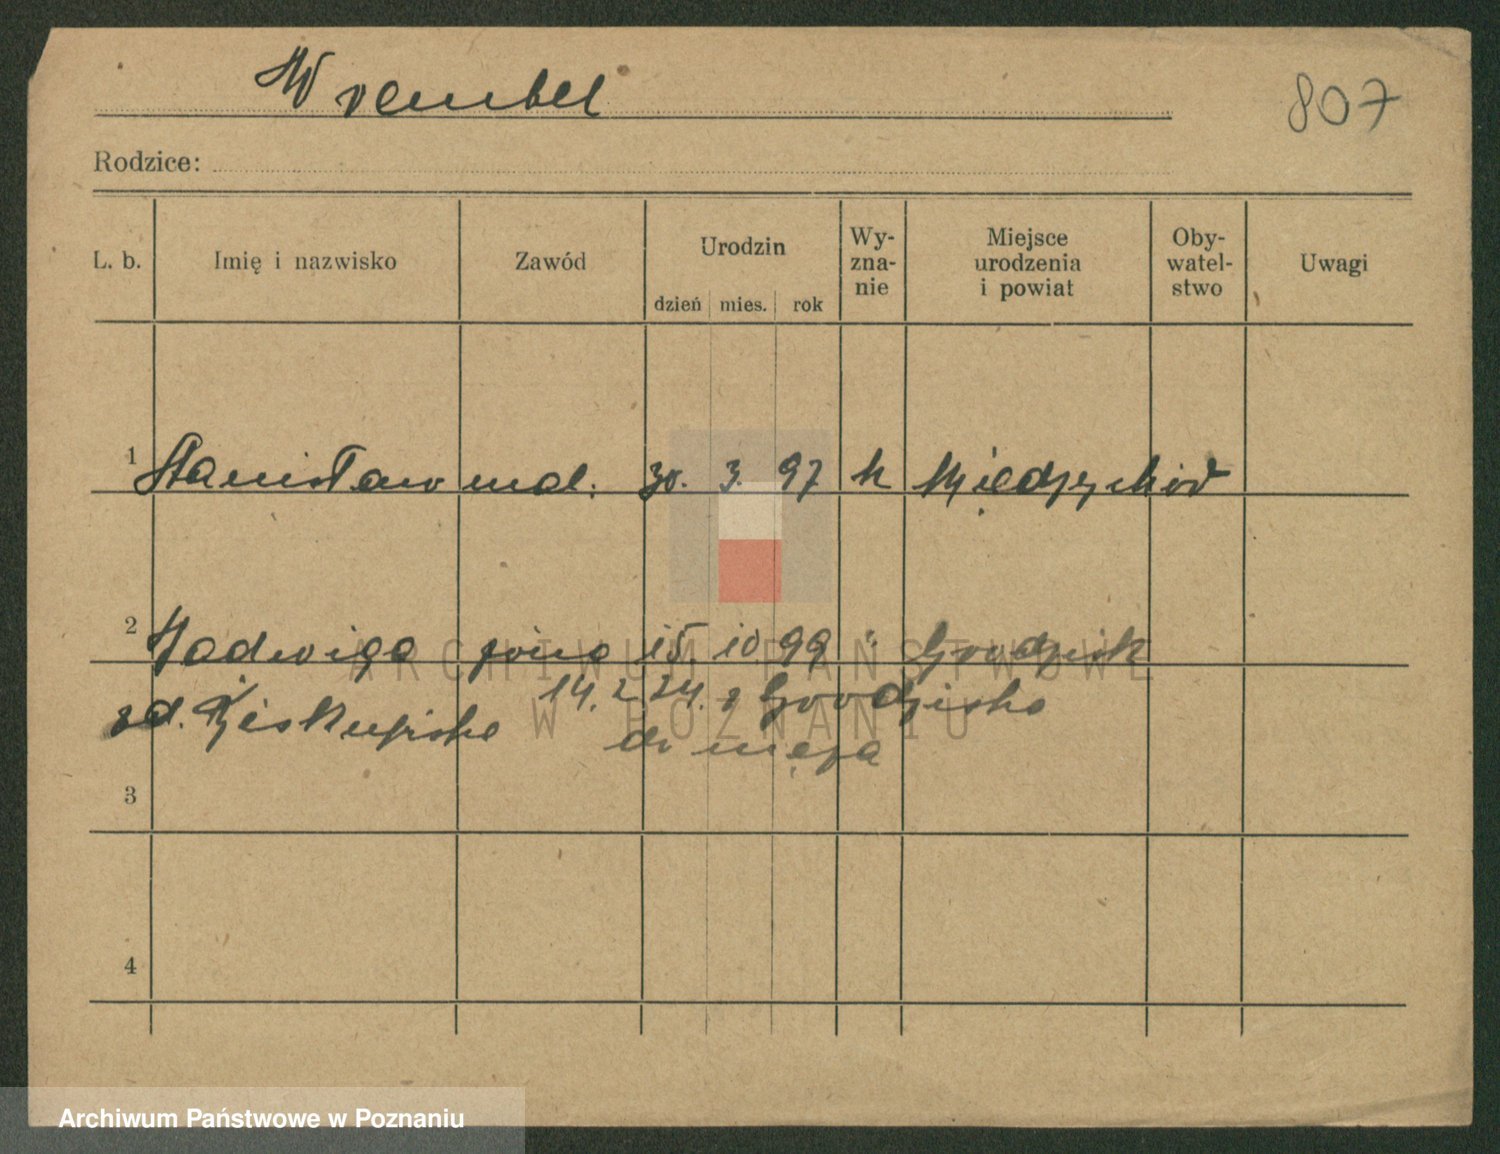 Wrembel
807
Rodzice:
L. b. Imię i nazwisko Zawód Urodzin dzień mies. rok Wy-zna-nie Miejsce urodzenia i powiat Oby-watel-stwo Uwagi
1 Stanisław mal. 30. 3. 97 k Międzychód
2 Jadwiga żona 15. 10 99 " Grodzisk
zd. 14. 2 24. z Grodziska
do męża
3
4
ARCHIWUM PAŃSTWOWE
W POZNANIU
Archiwum Państwowe w Poznaniu